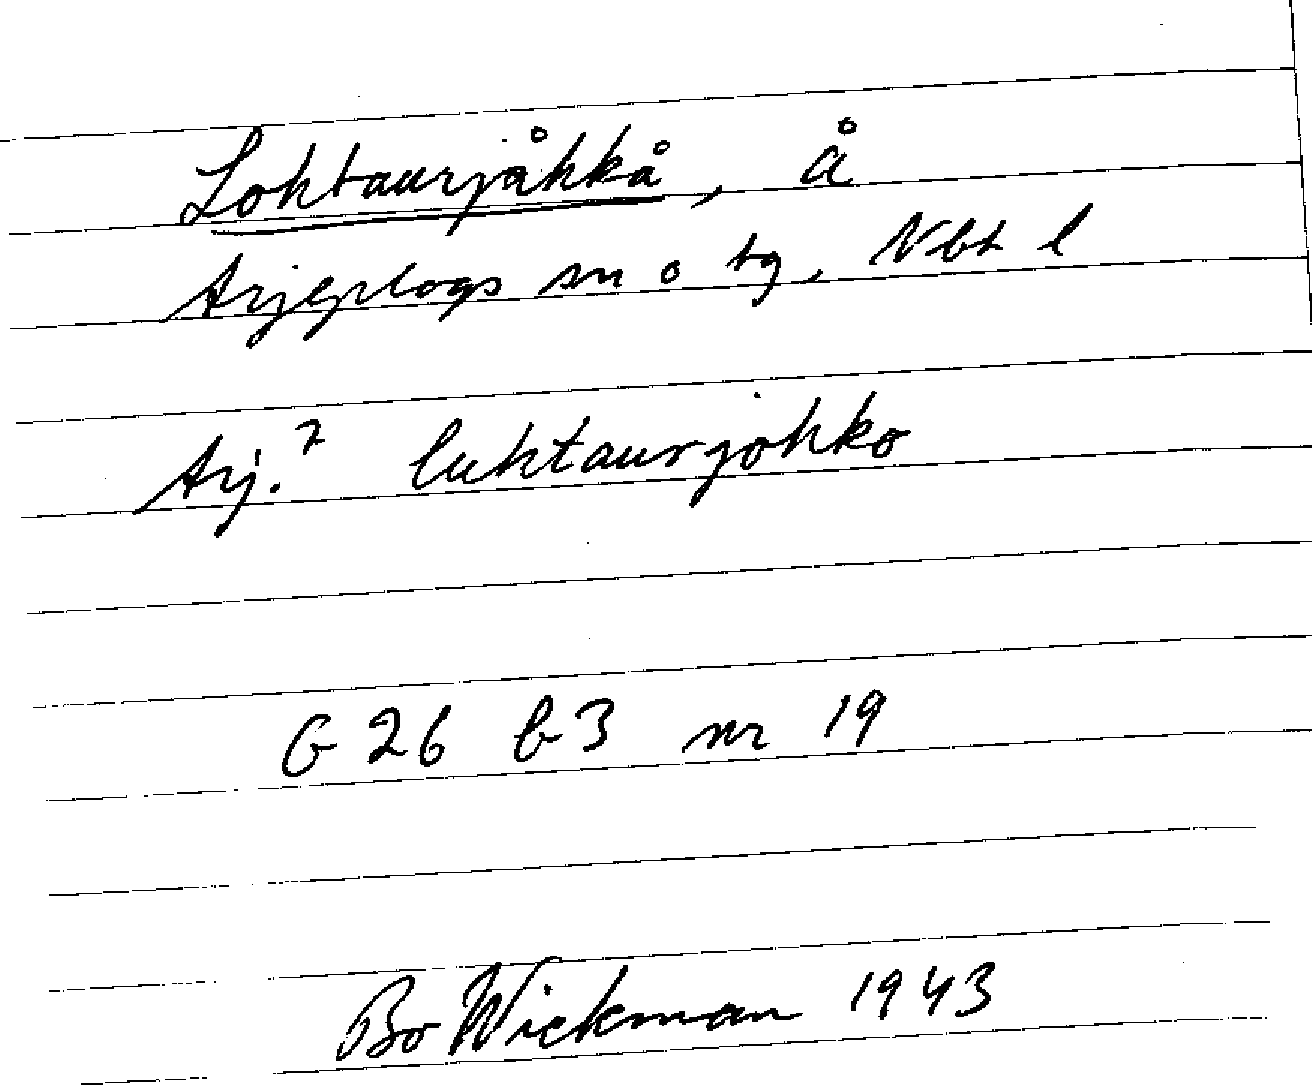 Lohtaurjåhkå, å
Arjeplogs sn o tg, Nbt l
Arj.² luhtaurjohko
G 26 b3 nr 19
Bo Wickman 1943